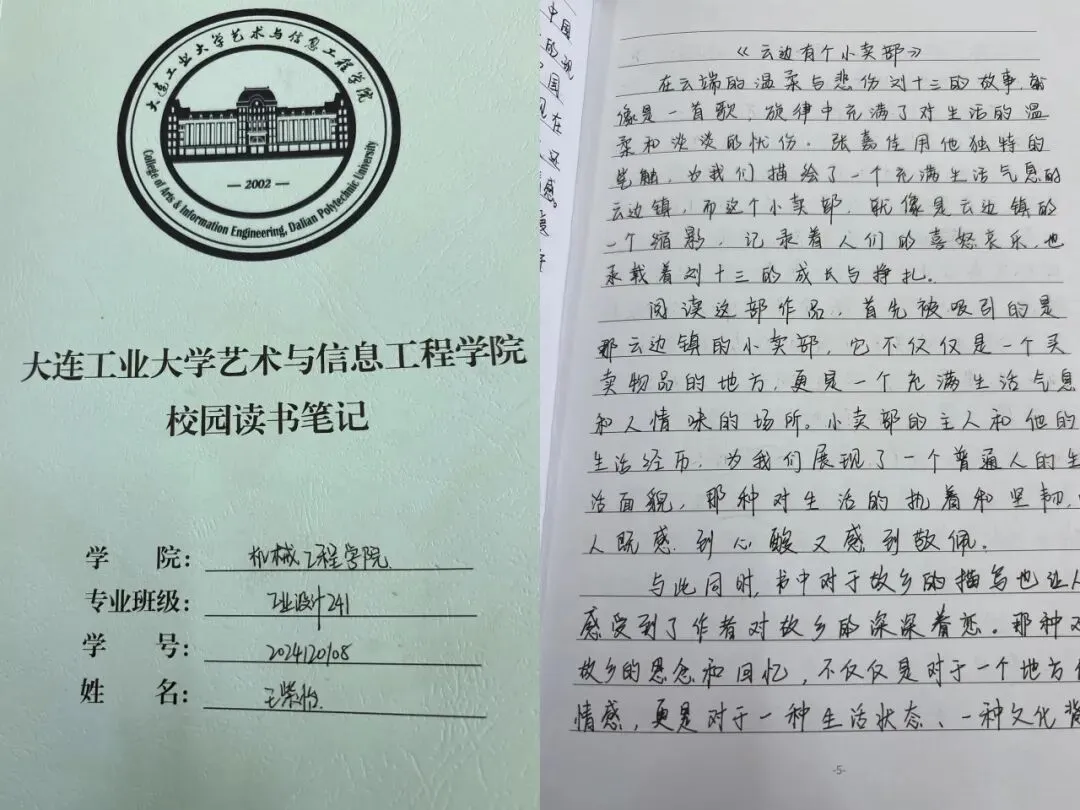 大连工业大学艺术与信息工程学院
2002
College of Arts & Information Engineering, Dalian Polytechnic University
大连工业大学艺术与信息工程学院
校园读书笔记
学 院：机械工程学院
专业班级：工业设计241
学 号：2024120108
姓 名：王紫怡
中国
的观
国
现在
还
情感
《云边有个小卖部》
在云端的温柔与悲伤刘十三的故事，就
像是一首歌，旋律中充满了对生活的温
柔和淡淡的忧伤。张嘉佳用他独特的
笔触，为我们描绘了一个充满生活气息的
云边镇，而这个小卖部，就像是云边镇的
一个缩影，记录着人们的喜怒哀乐，也
承载着刘十三的成长与挣扎。
阅读这部作品，首先被吸引的是
那云边镇的小卖部，它不仅仅是一个买
卖物品的地方，更是一个充满生活气息
和人情味的场所。小卖部的主人和他的
生活经历，为我们展现了一个普通人的生
活面貌，那种对生活的执着和坚韧，
人既感到心酸又感到敬佩。
与此同时，书中对于故乡的描写也让人
感受到了作者对故乡的深深着恋。那种对
故乡的思念和回忆，不仅仅是对于一个地方
情感，更是对于一种生活状态、一种文化背
-5-